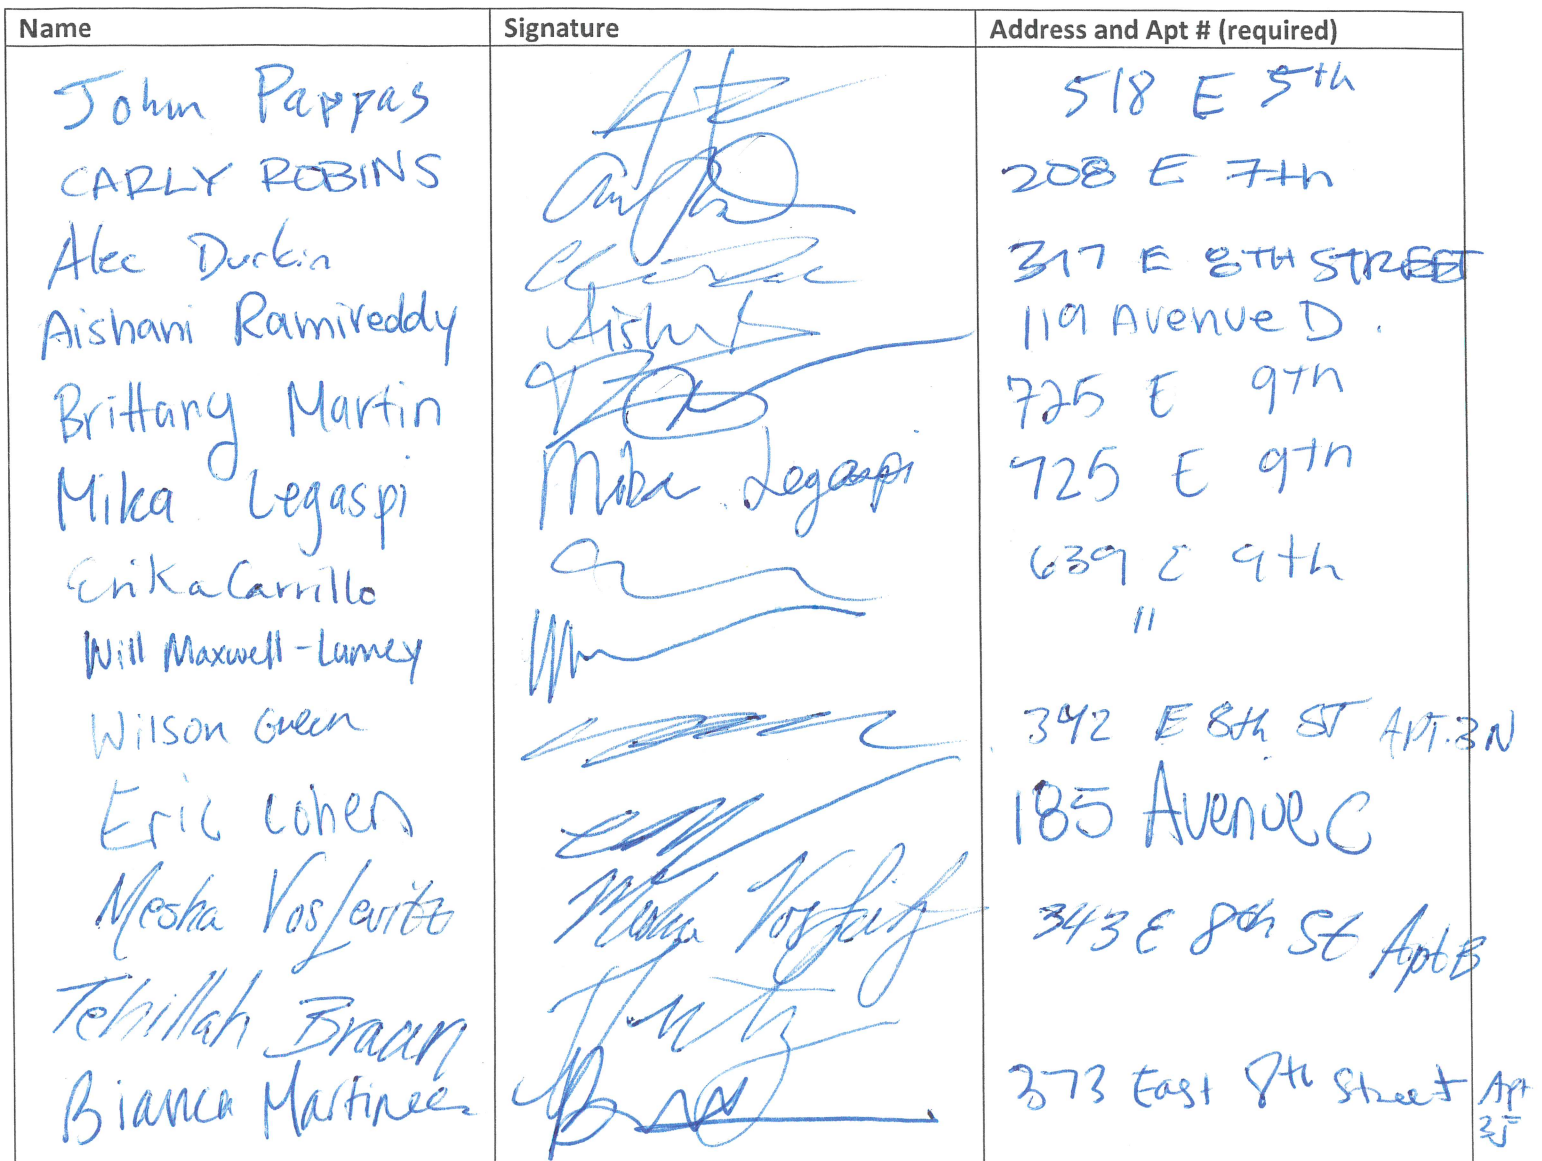 Name Signature Address and Apt # (required)
John Pappas 518 E 5th
CARLY ROBINS 208 E 7th
Alec Durkin 317 E 8TH STREET
Aishani Ramireddy 119 Avenue D.
Brittany Martin 725 E 9th
Mika Legaspi Mika Legaspi 725 E 9th
Erika Carrillo 639 E 9th
Will Maxwell-Lumey "
Wilson Green 392 E 8th ST APT. 3N
Eric Cohen 185 Avenue C
Mesha VosLevitz 343 E 8th St Apt B
Tehillah Braun
Bianca Martinez 373 East 8th Street Apt
3J